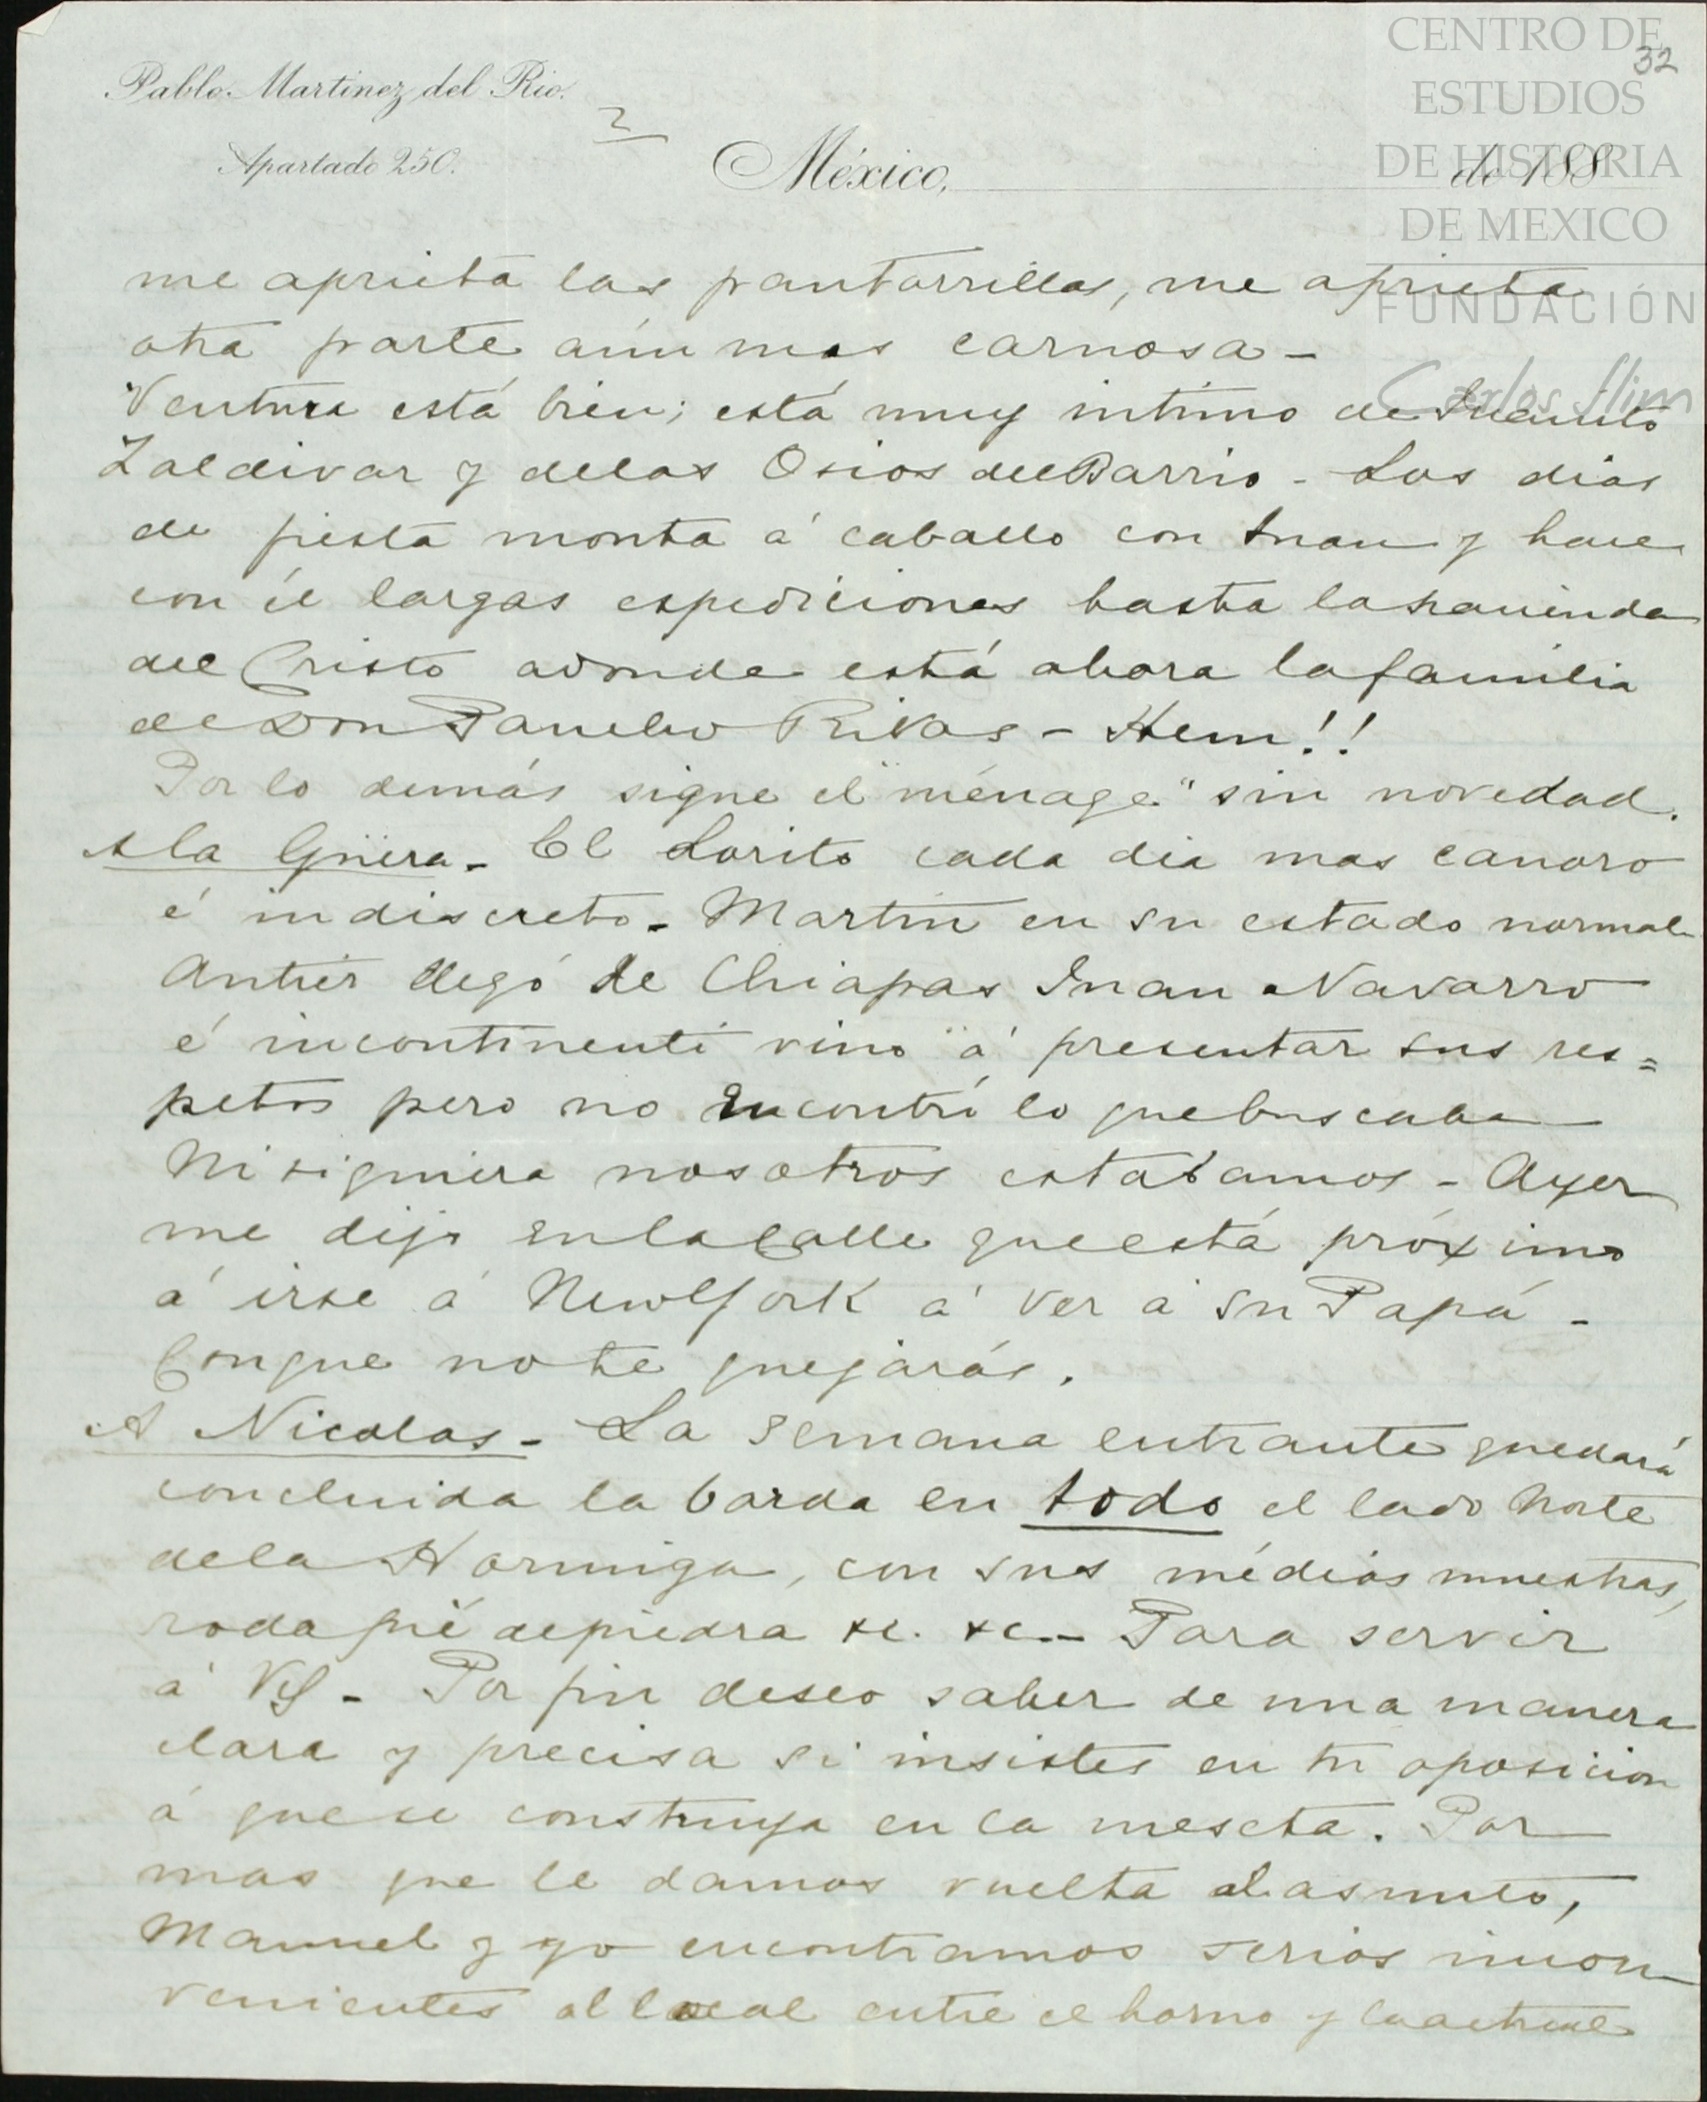 CENTRO DE
ESTUDIOS
DE HISTORIA
DE MEXICO
FUNDACIÓN
Carlos Slim
32
Pablo Martinez del Rio.
Apartado 250.
2
México, de 188
me aprieta las pantorrillas, me aprieta
otra parte aún mas carnosa -
Ventura está bien; está muy intimo de Juanito
Zaldivar y de los Osios del Barrio - Los dias
de fiesta monta á caballo con Juan y hace
con él largas espediciones hasta la hacienda
del Cristo adonde está ahora la familia
de Don Pancho Rivas - Hem!!
Por lo demás sigue el "ménage" sin novedad.
A la Güera - El Lorito cada dia mas canoro
é indiscreto - Martin en su estado normal
Antier llegó de Chiapas Juan Navarro
é incontinenti vino á presentar sus res=
petos pero no encontró lo que buscaba
Ni siquiera nosotros estabamos - Ayer
me dijo en la Calle que está próximo
á irse á New York á ver á su Papá -
Conque no te quejarás.
A Nicolas - La semana entrante quedará
concluida la barda en todo el lado Norte
de la Hormiga, con sus médias muestras,
rodapié de piedra &c. &c. - Para servir
á - Por fin deseo saber de una manera
clara y precisa si insistes en tu oposicion
á que se construya en la meseta. Por
mas que le damos vuelta al asunto,
Manuel y yo encontramos serios incon
venientes al local entre el horno y la actual